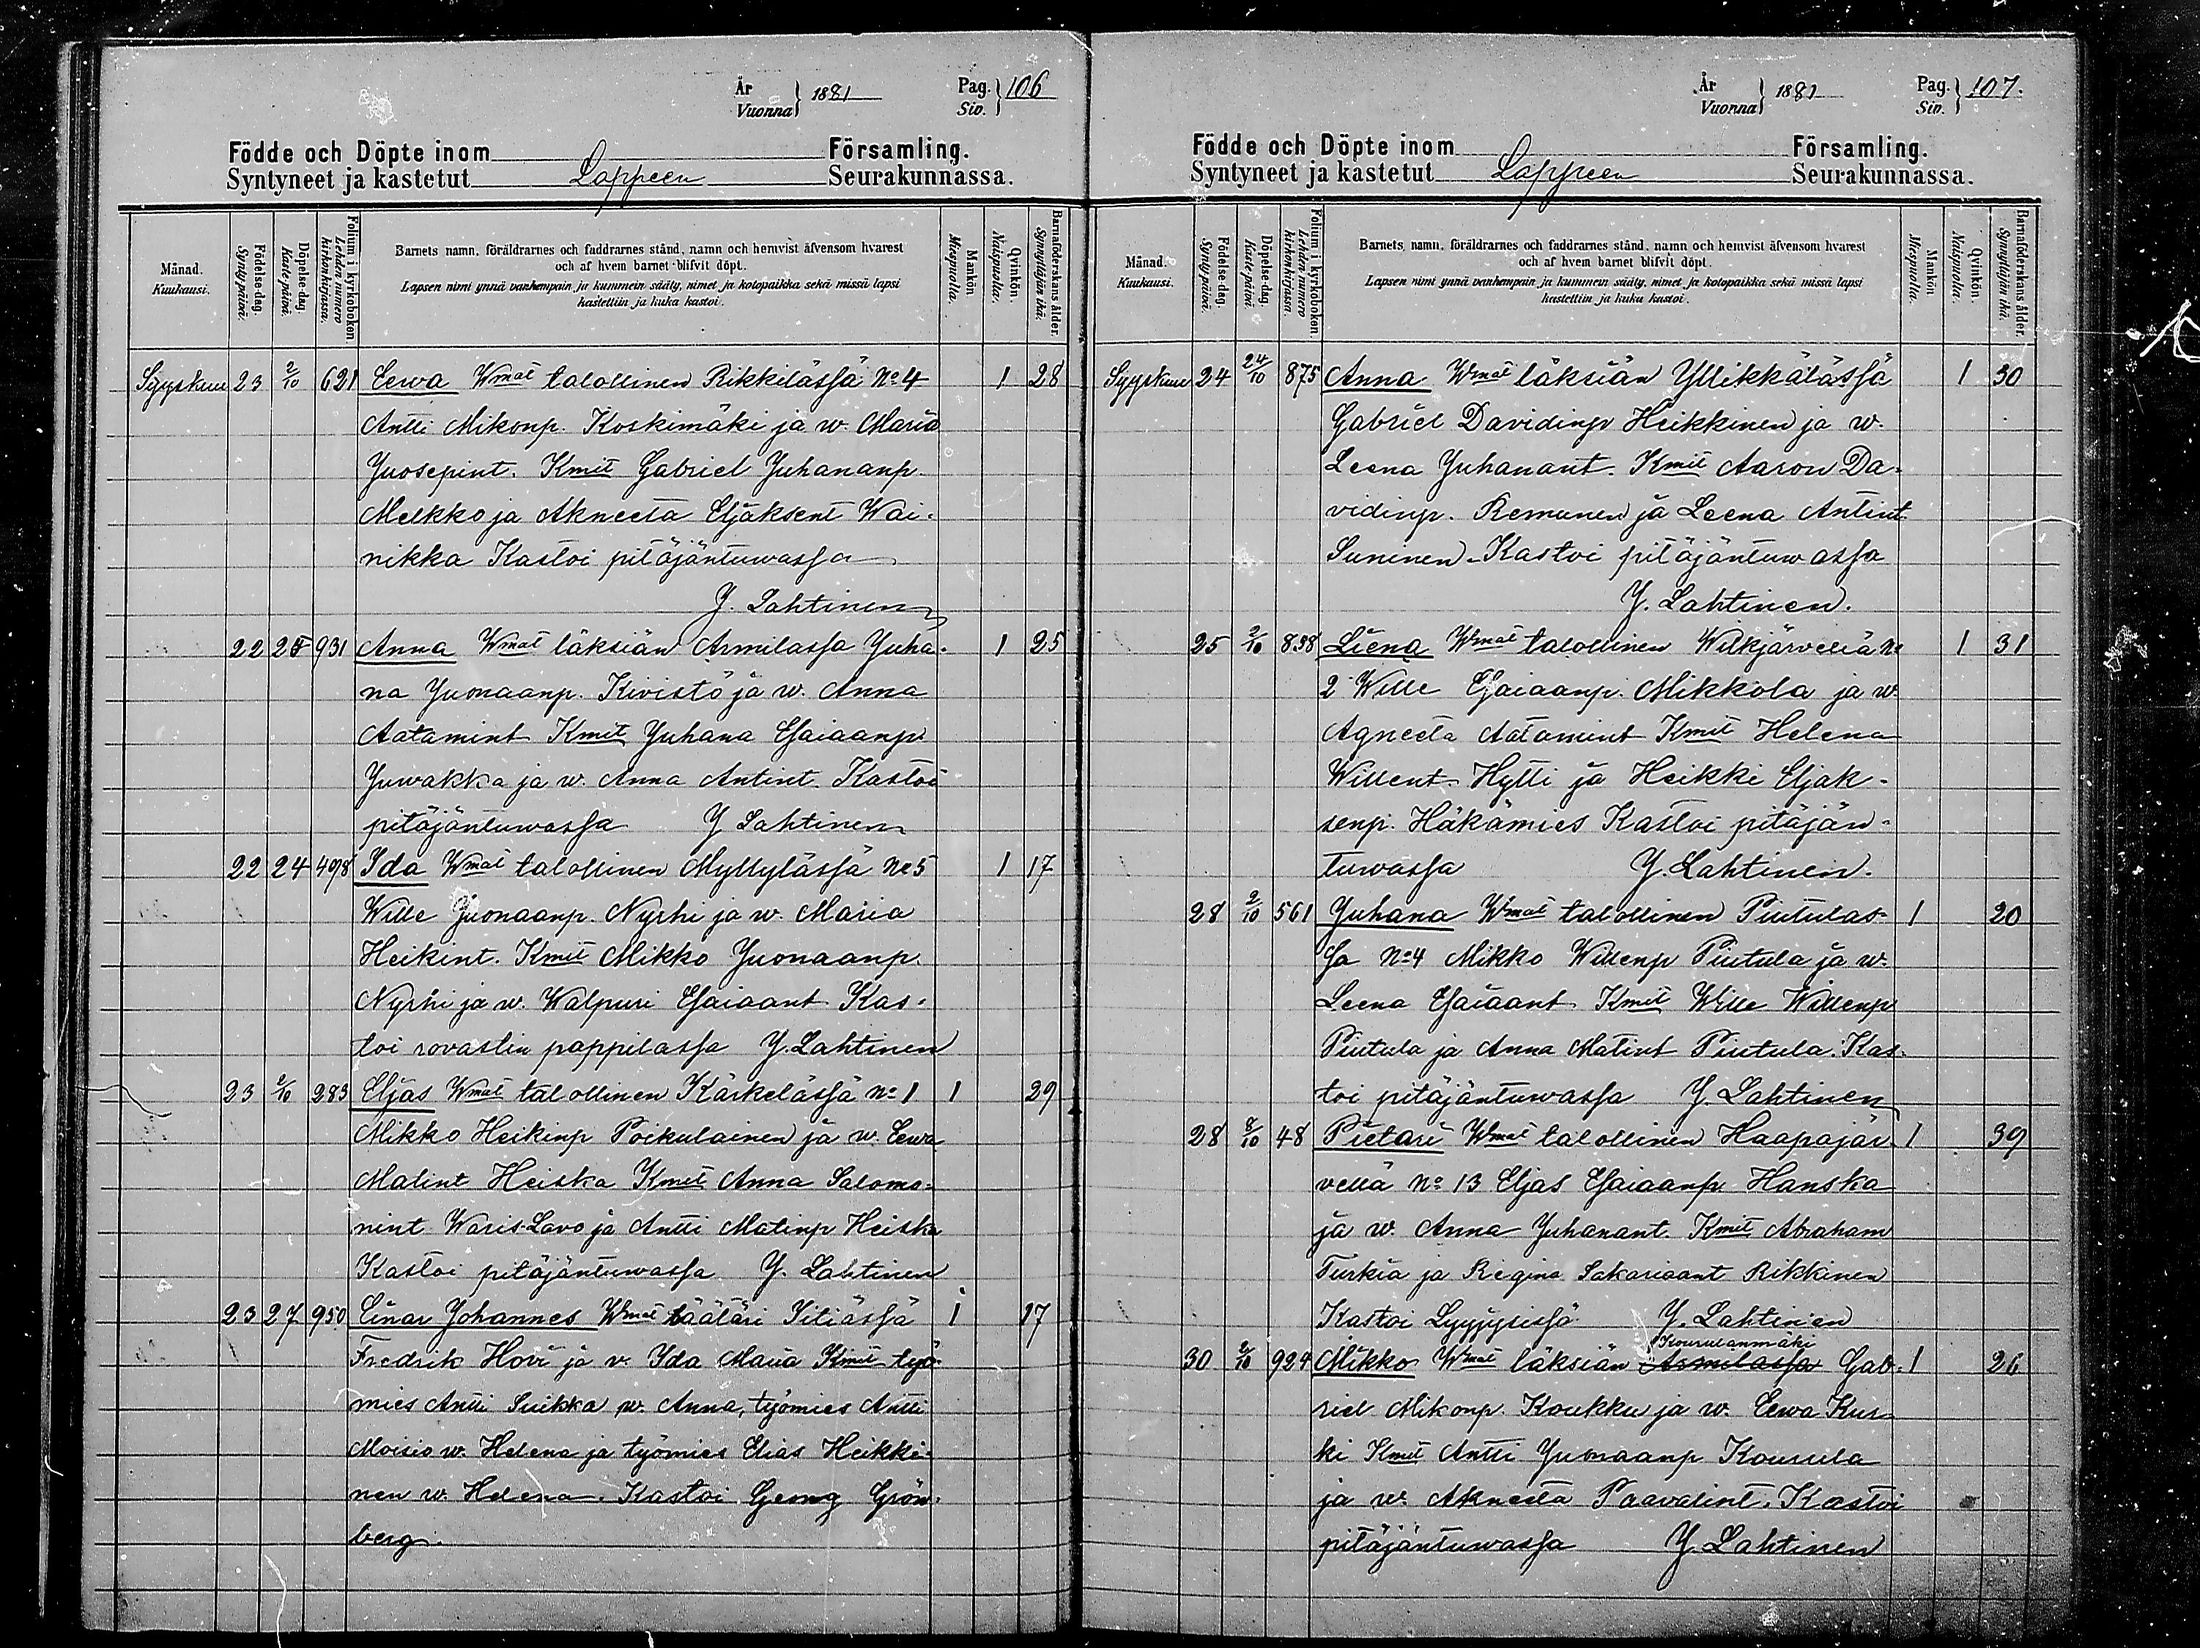 År
Vuonna } 1881
Pag.
Siv. } 106
Födde och Döpte inom Församling.
Syntyneet ja kastetut Lappeen Seurakunnassa.
Månad.
Kuukausi.
Födelse-dag.
Syntypäivä.
Döpelse-dag.
Kastepäivä.
Folium i kyrkoboken
Lehden numero
kirkonkirjassa.
Barnets namn, föräldrarnes och faddrarnes stånd, namn och hemvist äfvensom hvarest
och af hvem barnet blifvit döpt.
Lapsen nimi ynnä vanhempain ja kummein sääty, nimet ja kotopaikka sekä missä lapsi
kastettiin ja kuka kastoi.
Mankön
Miespuolia.
Qvinkön.
Naispuolia.
Barnaföderskans ålder.
Synnyttäjän ikä.
Syyskuu 23 2/10 621 Eewa Wmat talollinen Rikkilässä No 4 1 28
Antti Mikonp. Koskimäki ja w. Maria
Juosepint. Kmit Gabriel Juhananp.
Melkko ja Akneeta Eljaksent Wai-
nikka Kastoi pitäjäntuwassa
Y. Lahtinen
22 25 931 Anna Wmat läksiän Armilassa Juha- 1 25
na Juonaanp. Kivistö ja w. Anna
Aatamint Kmit Juhana Esaiaanp
Juwakka ja w. Anna Antint. Kastoi
pitäjäntuwassa Y Lahtinen
22 24 498 Ida Wmat talollinen Myllylässä No 5 1 17
Wille Juonaanp. Nyrhi ja w. Maria
Heikint. Kmit Mikko Juonaanp
Nyrhi ja w. Walpuri Esaiaant Kas-
toi rovastin pappilassa Y. Lahtinen
23 2/10 283 Eljas Wmat talollinen Kärkelässä No 1 1 29
Mikko Heikinp Poikulainen ja w. Eewa
Matint Heiska Kmit Anna Salomo-
nint Waris-Lavo ja Antti Matinp Heiska
Kastoi pitäjäntuwassa Y. Lahtinen
23 27 950 Einar Johannes Wmat täätäri Kiliässä 1 17
Fredrik Hovi ja v. Ida Maria Kmit työ-
mies Antti Suikka w. Anna, työmies Antti
Moisio w. Helena ja työmies Elias Heikki-
nen w. Helena. Kastoi Georg Grön-
berg.
År
Vuonna } 1881
Pag.
Siv. } 107.
Födde och Döpte inom Församling.
Syntyneet ja kastetut Lappeen Seurakunnassa.
Månad.
Kuukausi.
Födelse-dag.
Syntypäivä.
Döpelse-dag.
Kastepäivä.
Folium i kyrkoboken
Lehden numero
kirkonkirjassa.
Barnets namn, föräldrarnes och faddrarnes stånd, namn och hemvist äfvensom hvarest
och af hvem barnet blifvit döpt.
Lapsen nimi ynnä vanhempain ja kummein sääty, nimet ja kotopaikka sekä missä lapsi
kastettiin ja kuka kastoi.
Mankön
Miespuolia.
Qvinkön.
Naispuolia.
Barnaföderskans ålder.
Synnyttäjän ikä.
Syyskuu 24 24/10 875 Anna Wmat läksiän Yllikkälässä 1 30
Gabriel Davidinp Heikkinen ja w.
Leena Juhanant. Kmit Aaron Da-
vidinp. Remunen ja Leena Antint
Suninen. Kastoi pitäjäntuwassa
Y. Lahtinen.
25 2/10 838 Liena Wmat talollinen Wilkjärvellä No 1 31
2 Wille Esaiaanp. Mikkola ja w.
Agneeta Aatamint Kmit Helena
Willent. Hytti ja Heikki Eljak-
senp. Häkämies Kastoi pitäjän-
tuwassa Y. Lahtinen.
28 2/10 561 Juhana Wmat talollinen Piutulas- 1 20
sa No 4 Mikko Willenp Piutula ja w.
Leena Esaiaant Kmit Wille Willenp
Piutula ja Anna Matint Piutula. Kas-
toi pitäjäntuwassa Y. Lahtinen
28 8/10 48 Pietari Wmat talollinen Haapajär- 1 39
vellä No 13 Eljas Esaiaanp Hanska
ja w. Anna Juhanant. Kmit Abraham
Turkia ja Regina Sakariaant Rikkinen
Kastoi Y. Lahtinen
Kourulanmäki
30 2/10 924 Mikko Wmat läksiän Armilassa Gab- 1 26
riel Mikonp. Koukku ja w. Eewa Kur-
ki Kmit Antti Juonaanp Kourula
ja w. Akneeta Paavalint. Kastoi
pitäjäntuwassa Y. Lahtinen